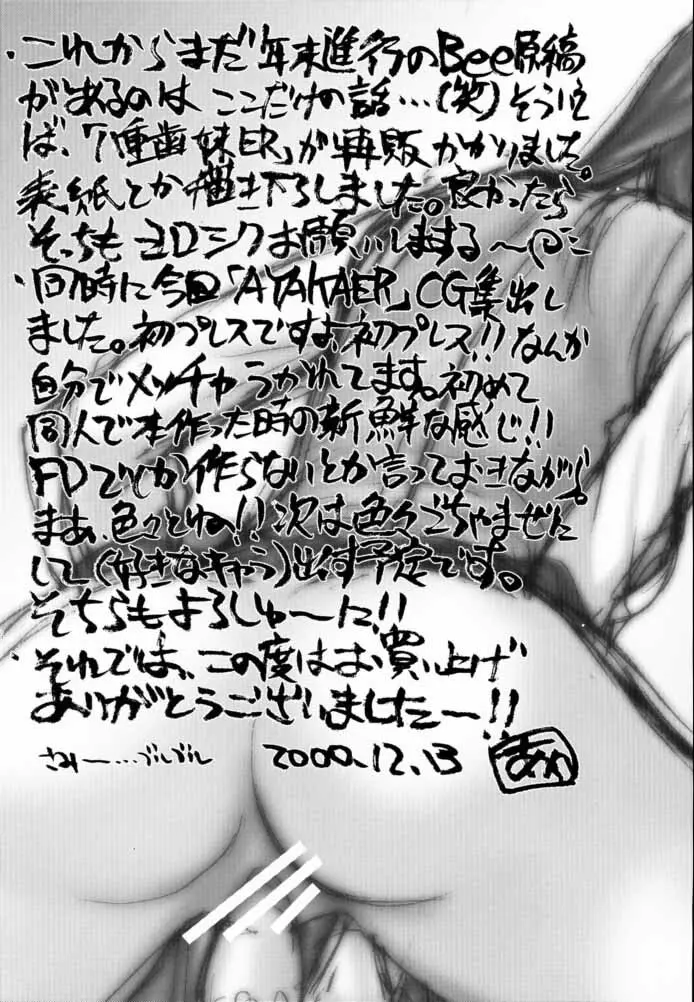 ・これからまだ年末進行のBee原稿
があるのはここだけの話…(笑)そういえ
ば、「八重歯妹ER」が再販かかりました。
表紙とか描き下ろしました。良かったら
そっちもヨロシクお願いしまする〜
・同時に今回「AYAKAER」CG集出し
ました。初プレスですよ、初プレス!!なんか
自分でメッチャうかれてます。初めて
同人で本作った時の新鮮な感じ!!
FDでしか作らないとか言っておきながら。
まあ、色々とね!!次は色々ごちゃまぜに
して(好きなキャラ)出す予定です。
そちらもよろしゅ〜に!!
・それでは、この度はお買い上げ
ありがとうございました〜!!
さみー…ブルブル 2000.12.13